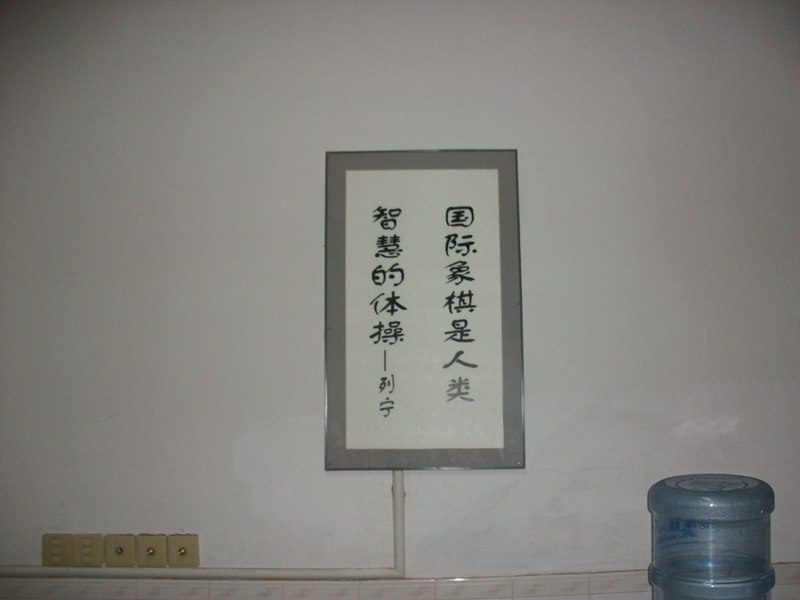 国际象棋是人类
智慧的体操—列宁